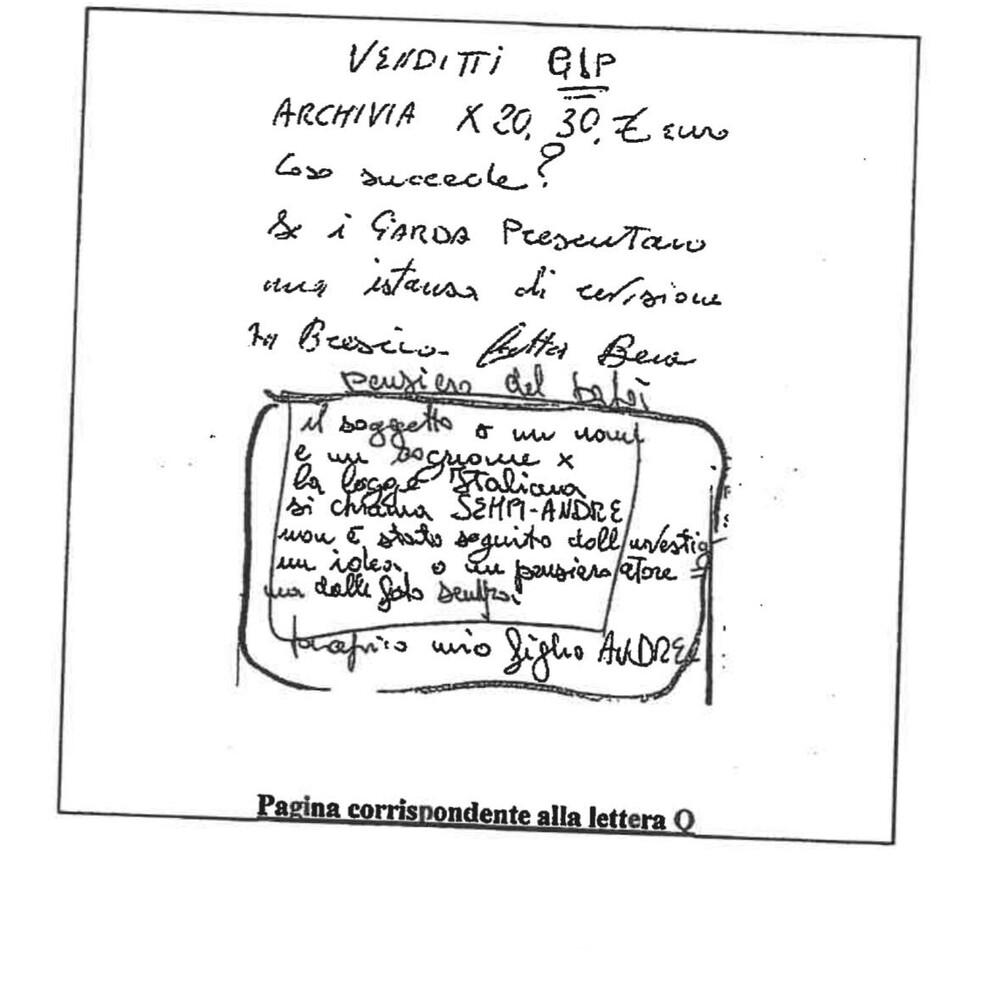 VENDITTI GIP
ARCHIVIA X 20. 30. € euro
Cosa succede?
Se i GARDA Presentano
una istansa di revisione
in Brescia Bera
pensiero del
il soggetto o un nome
e un cognome x
la logge Italiana
si chiama SEMPI-ANDRE
non è stato seguito dall investig
un idea o un pensiero atore =
ma dalle foto sembra
proprio mio figlio ANDRE
Pagina corrispondente alla lettera Q